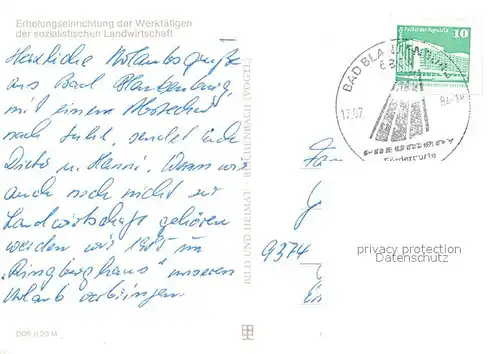 Erholungseinrichtung der Werktätigen
der sozialistischen Landwirtschaft
Herzliche Urlaubsgrüße
aus Bad Blankenburg,
mit einem Abstecher
nach Suhl, sendet Euch
Dieter u. Hanni. Wenn wir
auch noch nicht zur
Landwirtschaft gehören
werden wir 1985 im
"Ringberghaus" unseren
Urlaub verbringen.
DDR 0,20 M
BILD UND HEIMAT REICHENBACH (VOGTL)
Palast der Republik
10
BAD BLA
17.07.
84-18
Fam
9374
privacy protection
Datenschutz